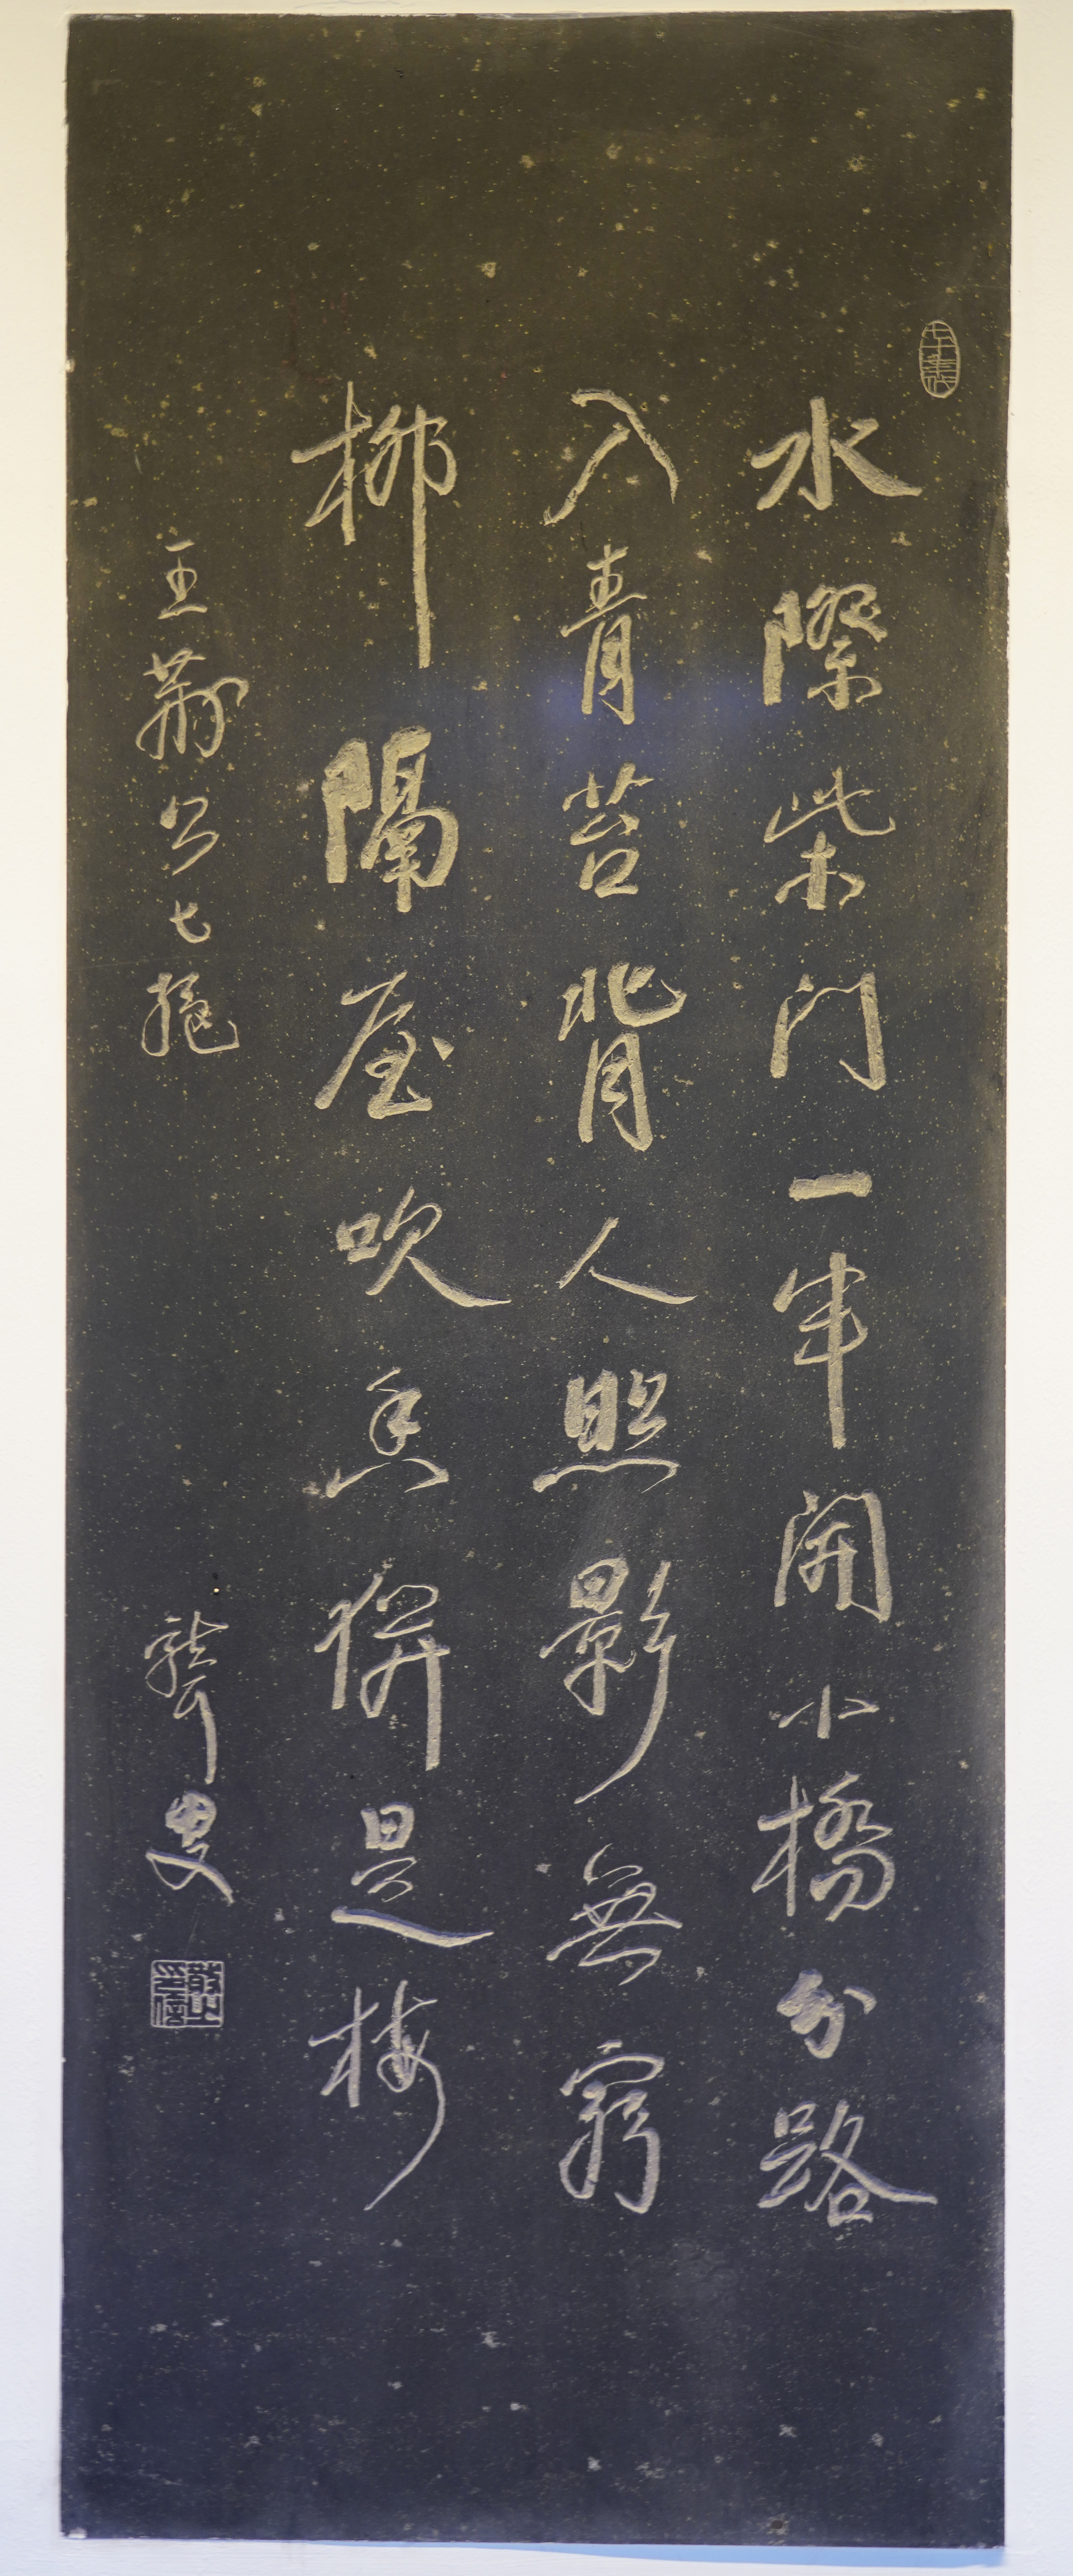 水際柴門一半開小橋分路
入青苔背人照影無窮
柳隔屋吹香併是梅
王荊公七絕
聾叟